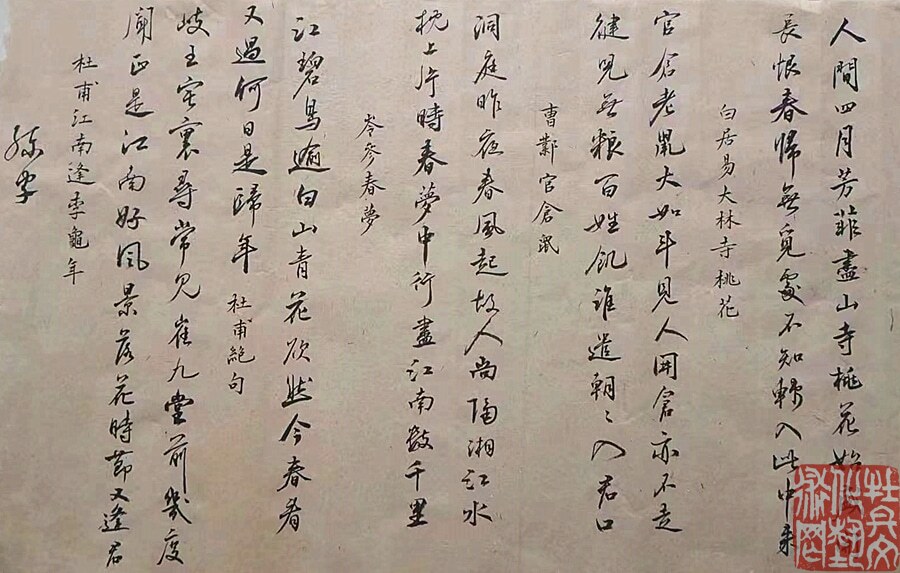 人間四月芳菲盡山寺桃花始
長恨春歸無覓處不知轉入此中來
白居易大林寺桃花
官倉老鼠大如斗見人開倉亦不走
健兒無粮百姓飢誰遣朝〻入君口
曹鄴官倉鼠
洞庭昨夜春風起故人尚隔湘江水
枕上片時春夢中行盡江南數千里
岑参春夢
江碧鳥逾白山青花欲然今春看
又過何日是歸年
杜甫絕句
岐王宅裏尋常見崔九堂前幾度
聞正是江南好風景落花時節又逢君
杜甫江南逢李龜年